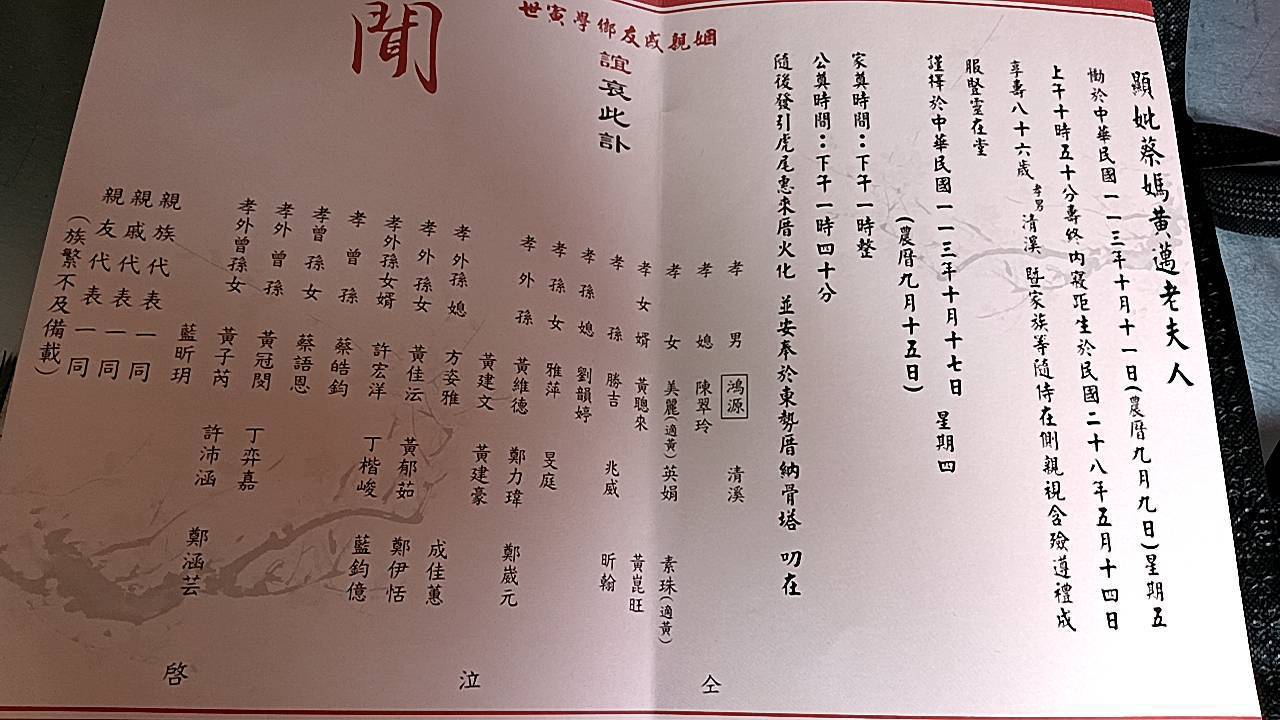 顯妣蔡媽黃邁老夫人
慟於中華民國一一三年十月十一日(農曆九月九日)星期五
上午十時五十分壽終內寢距生於民國二十八年五月十四日
享壽八十六歲 孝男 清溪 暨家族等隨侍在側親視含殮遵禮成
服豎靈在堂
謹擇於中華民國一一三年十月十七日 星期四
(農曆九月十五日)
家奠時間：下午一時整
公奠時間：下午一時四十分
隨後發引虎尾惠來厝火化 並安奉於東勢厝納骨塔 叨在
姻親戚友鄉學寅世
誼哀此訃
聞
孝男 鴻源 清溪
孝媳 陳翠玲
孝女 美麗(適黃) 英娟 素珠(適黃)
孝女婿 黃聰來 黃崑旺
孝孫 勝吉 兆威 昕翰
孝孫媳 劉韻婷
孝孫女 雅萍 旻庭
孝外孫 黃維德 鄭力瑋 鄭崴元
黃建文 黃建豪
孝外孫媳 方姿雅
孝外孫女 黃佳沄 黃郁茹 成佳蕙
孝外孫女婿 許宏洋 丁楷峻 鄭伊恬
孝曾孫 蔡皓鈞 藍鈞億
孝曾孫女 蔡語恩
孝外曾孫 黃冠閔 丁弈嘉
孝外曾孫女 黃子芮 許沛涵 鄭涵芸
藍昕玥
親族代表一同
親戚代表一同
親友代表一同
(族繁不及備載)
仝
泣
啓